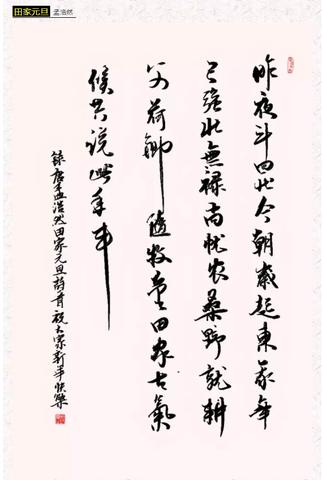 田家元旦 孟浩然
昨夜斗回北今朝歲起東我年
已强仕無禄尚忧农桑野就耕
父荷鋤隨牧童田家占氣
候共说此年丰
録唐孟浩然田家元旦詩首祝大家新年快樂